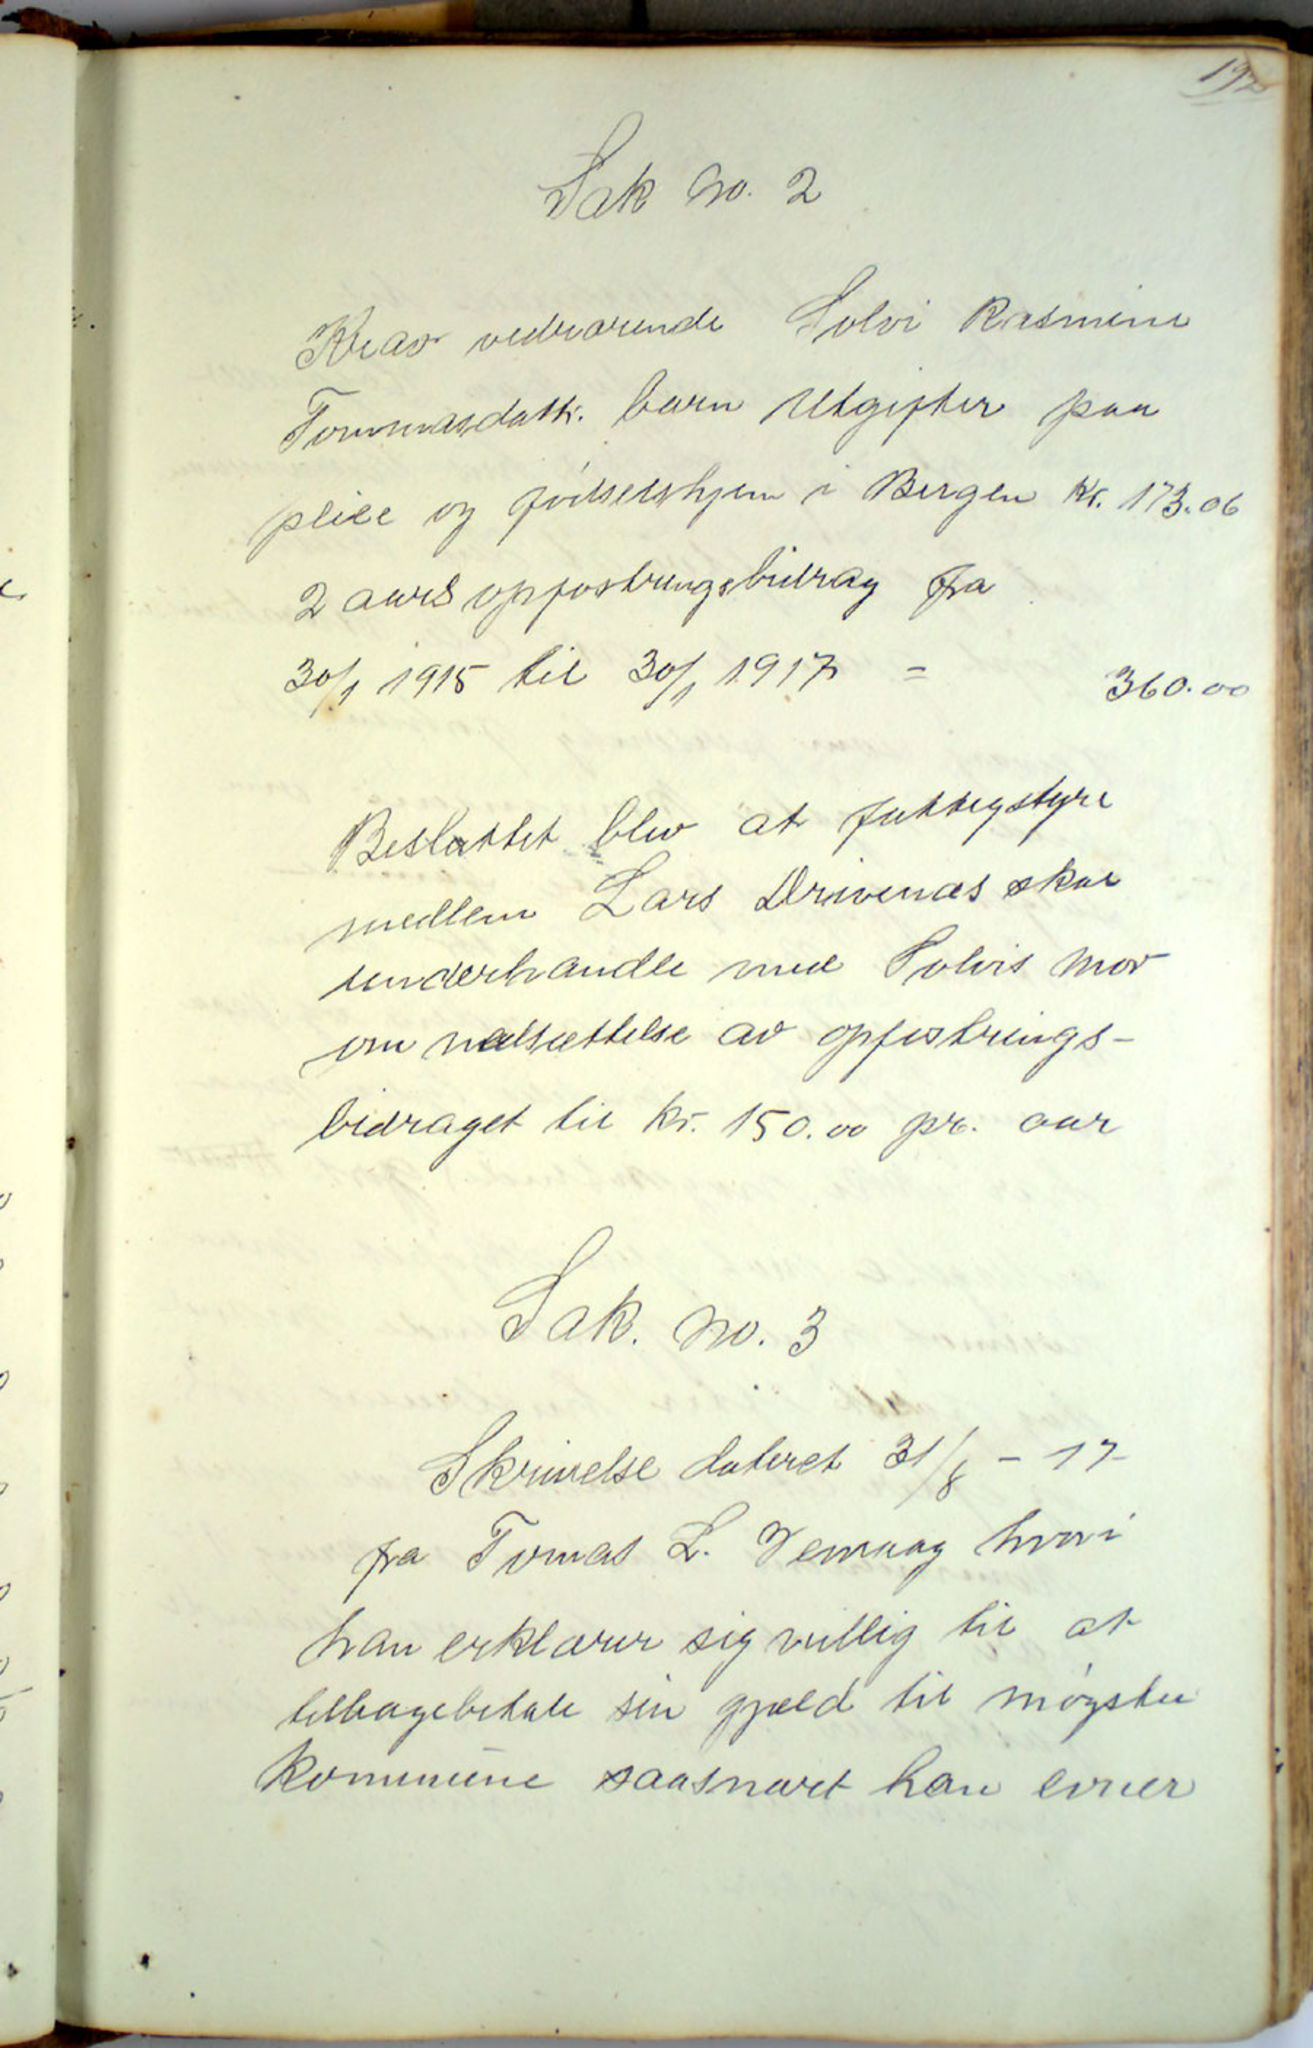 192
Sak No. 2
Krav vedrørende Solvi Rasmine
Tommasdattr. barn Utgifter paa
pleie og födselshjem i Bergen Kr. 173.06
2 aars opfostringsbidrag fra
30/1 1915 til 30/1 1917 = 360.00
Besluttet blev at fattigstyre
medlem Lars Drivenæs skal
underhandle med Solvis mor
om nedsættelse av opfostrings-
bidraget til kr. 150.00 pr. aar
Sak. No. 3
Skrivelse dateret 31/8 - 17
fra Tomas L. hvori
han erklærer sig villig til at
tilbagebetale sin gjæld til Møgster
Kommune saasnart han evner